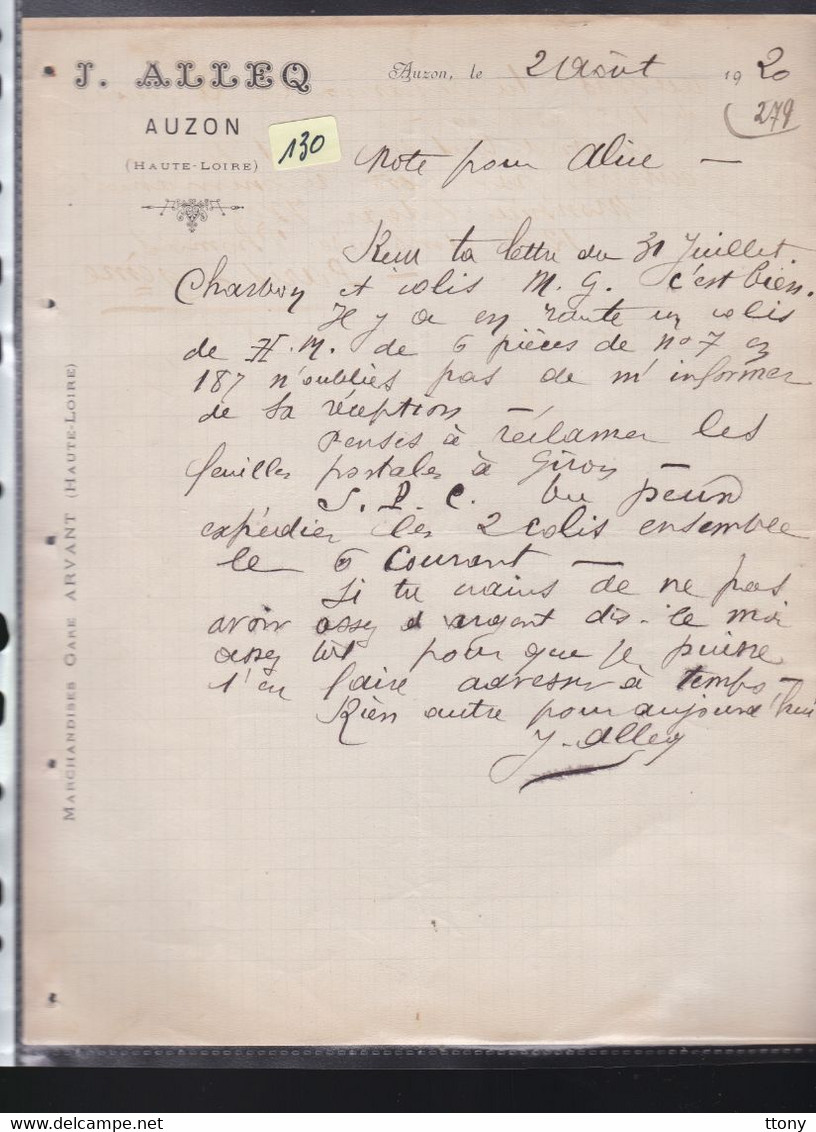 J. ALLEQ
AUZON
(HAUTE-LOIRE)
130
Auzon, le 2 Août 1920
279
Note pour Alice —
Reçu ta lettre du 31 Juillet.
Charbon et colis M. G. c'est bien.
Il y a en route un colis
de H. M. de 6 pièces de no 7 en
187 n'oublies pas de m'informer
de sa réception —
Penses à réclamer les
feuilles postales à Giron —
S. P. C. tu peux
expédier les 2 colis ensemble
le 6 courant —
Si tu crains de ne pas
avoir assez d'argent dis-le moi
assez tôt pour que je puisse
t'en faire adresser à temps,
Rien autre pour aujourd'hui
J. Alleq
MARCHANDISES GARE ARVANT (HAUTE-LOIRE)
ttony